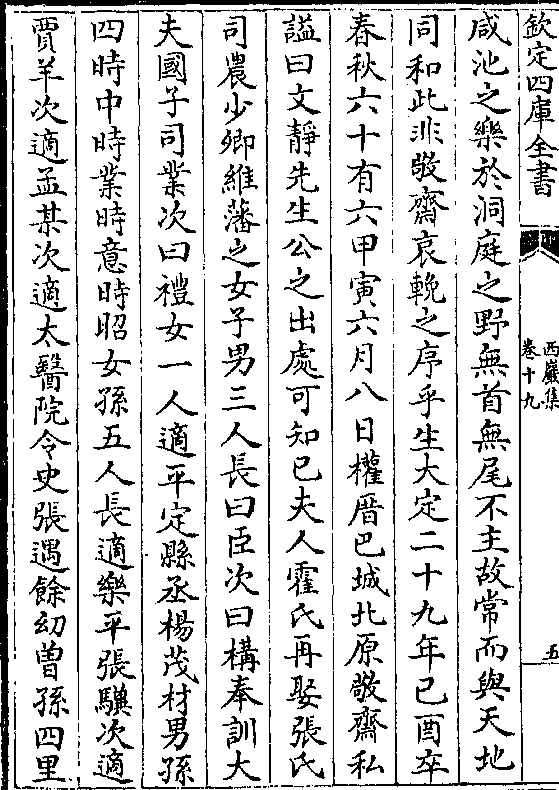 欽定四庫全書
西巖集
卷十九
五
咸池之樂於洞庭之野無首無尾不主故常而與天地
同和此非敬齋哀輓之序乎生大定二十九年己酉卒
春秋六十有六甲寅六月八日權厝巴城北原敬齋私
謚曰文靜先生公之出處可知已夫人霍氏再娶張氏
司農少卿維藩之女子男三人長曰臣次曰構奉訓大
夫國子司業次曰禮女一人適平定縣丞楊茂材男孫
四時中時業時意時昭女孫五人長適樂平張驥次適
賈羊次適孟某次適太醫院令史張遇餘幼曾孫四里